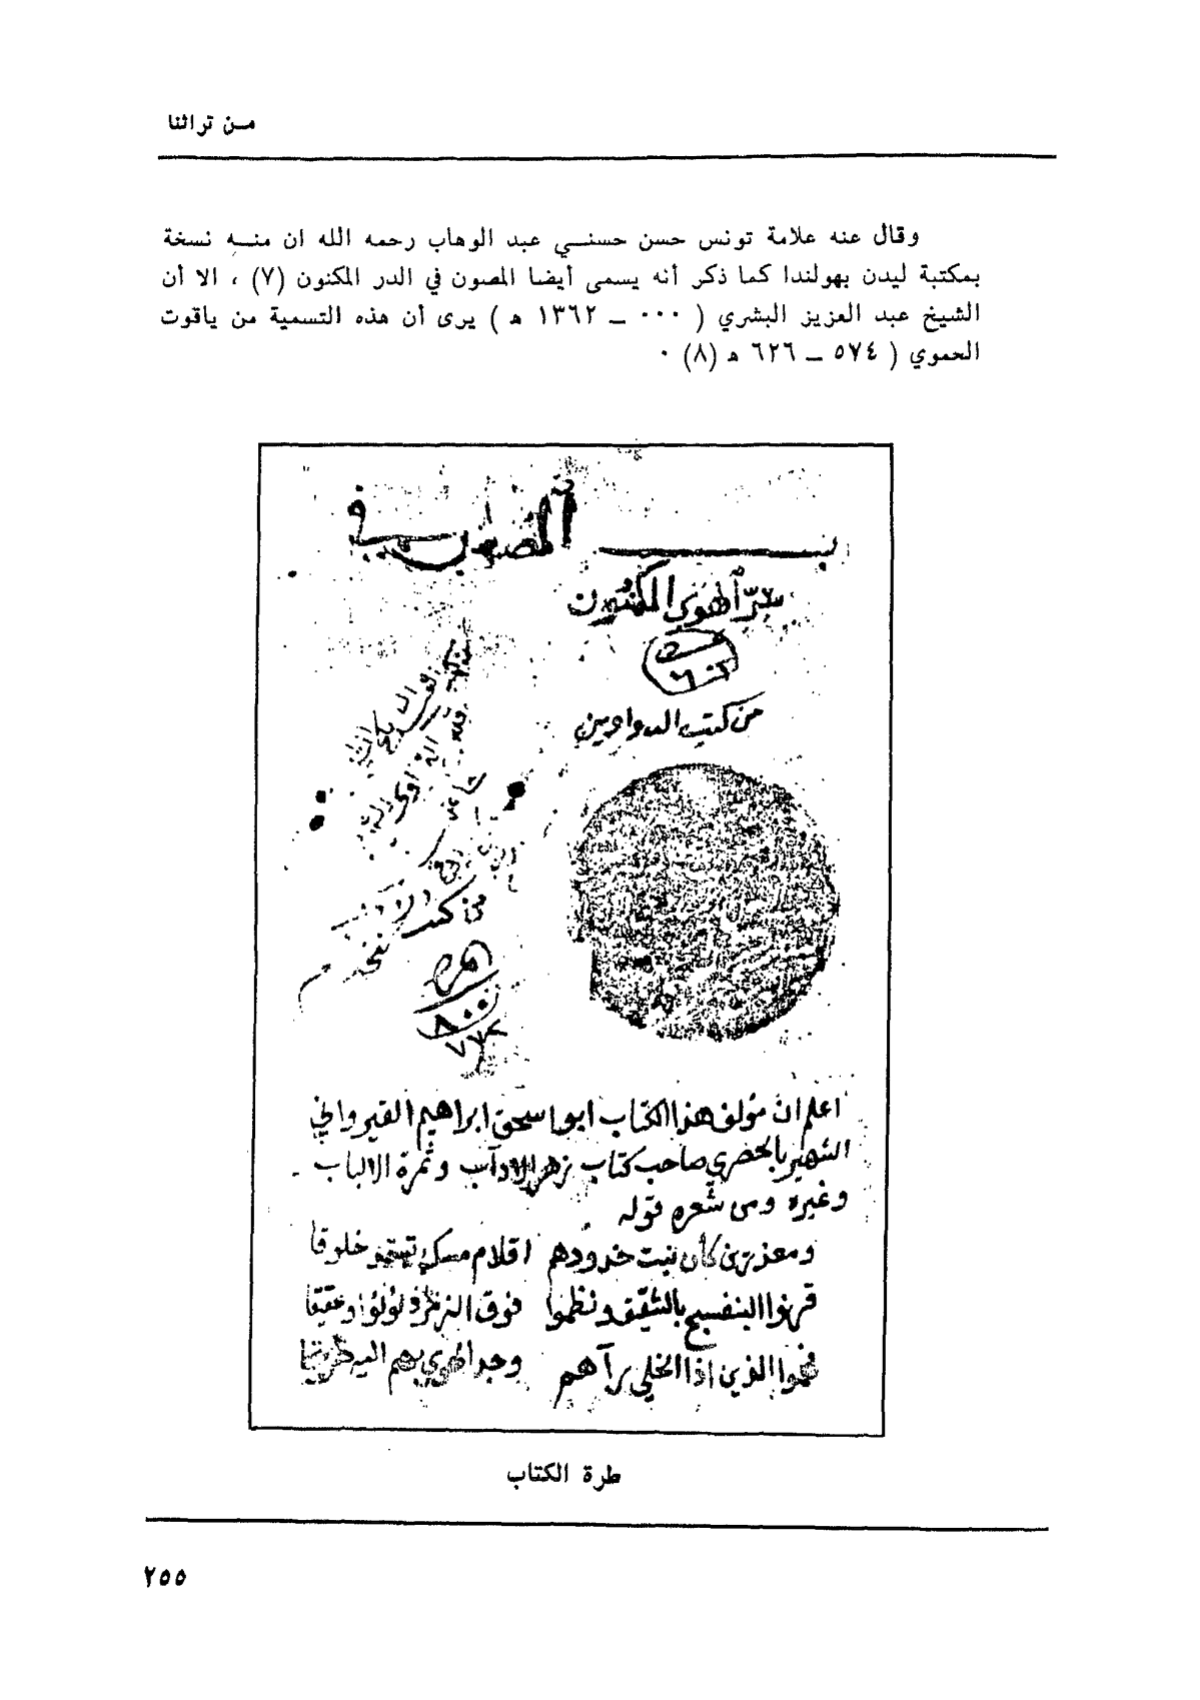 مــن تراثنا
وقال عنه علامة تونس حسن حسنــي عبد الوهاب رحمه الله ان منــه نسخة
بمكتبة ليدن بهولندا كما ذكر أنه يسمى أيضا المصون في الدر المكنون (٧) ، الا أن
الشيخ عبد العزيز البشري ( ٠٠٠ ــ ١٣٦٢ هـ ) يرى أن هذه التسمية من ياقوت
الحموي ( ٥٧٤ ــ ٦٢٦ هـ (٨) ٠
المصون في
سر الهوى المكنون
٦٠٢
من كتب الدواوين
من كتب
٨٠٠
٧٧٢
اعلم ان مؤلف هذا الكتاب ابو اسحق ابراهيم القيرواني
الشهير بالحصري صاحب كتاب زهر الاداب وثمرة الالباب
وغيره ومن شعره قوله
ومعذرين كأن نبت خدودهم اقلام مسك تستمد خلوقا
قرنوا البنفسج بالشقيق ونظموا فوق الزمرذ لؤلؤا وعقيقا
فهم الذين اذا الخلي رآهم وجد الهوى بهم اليه طريقا
طرة الكتاب
٢٥٥